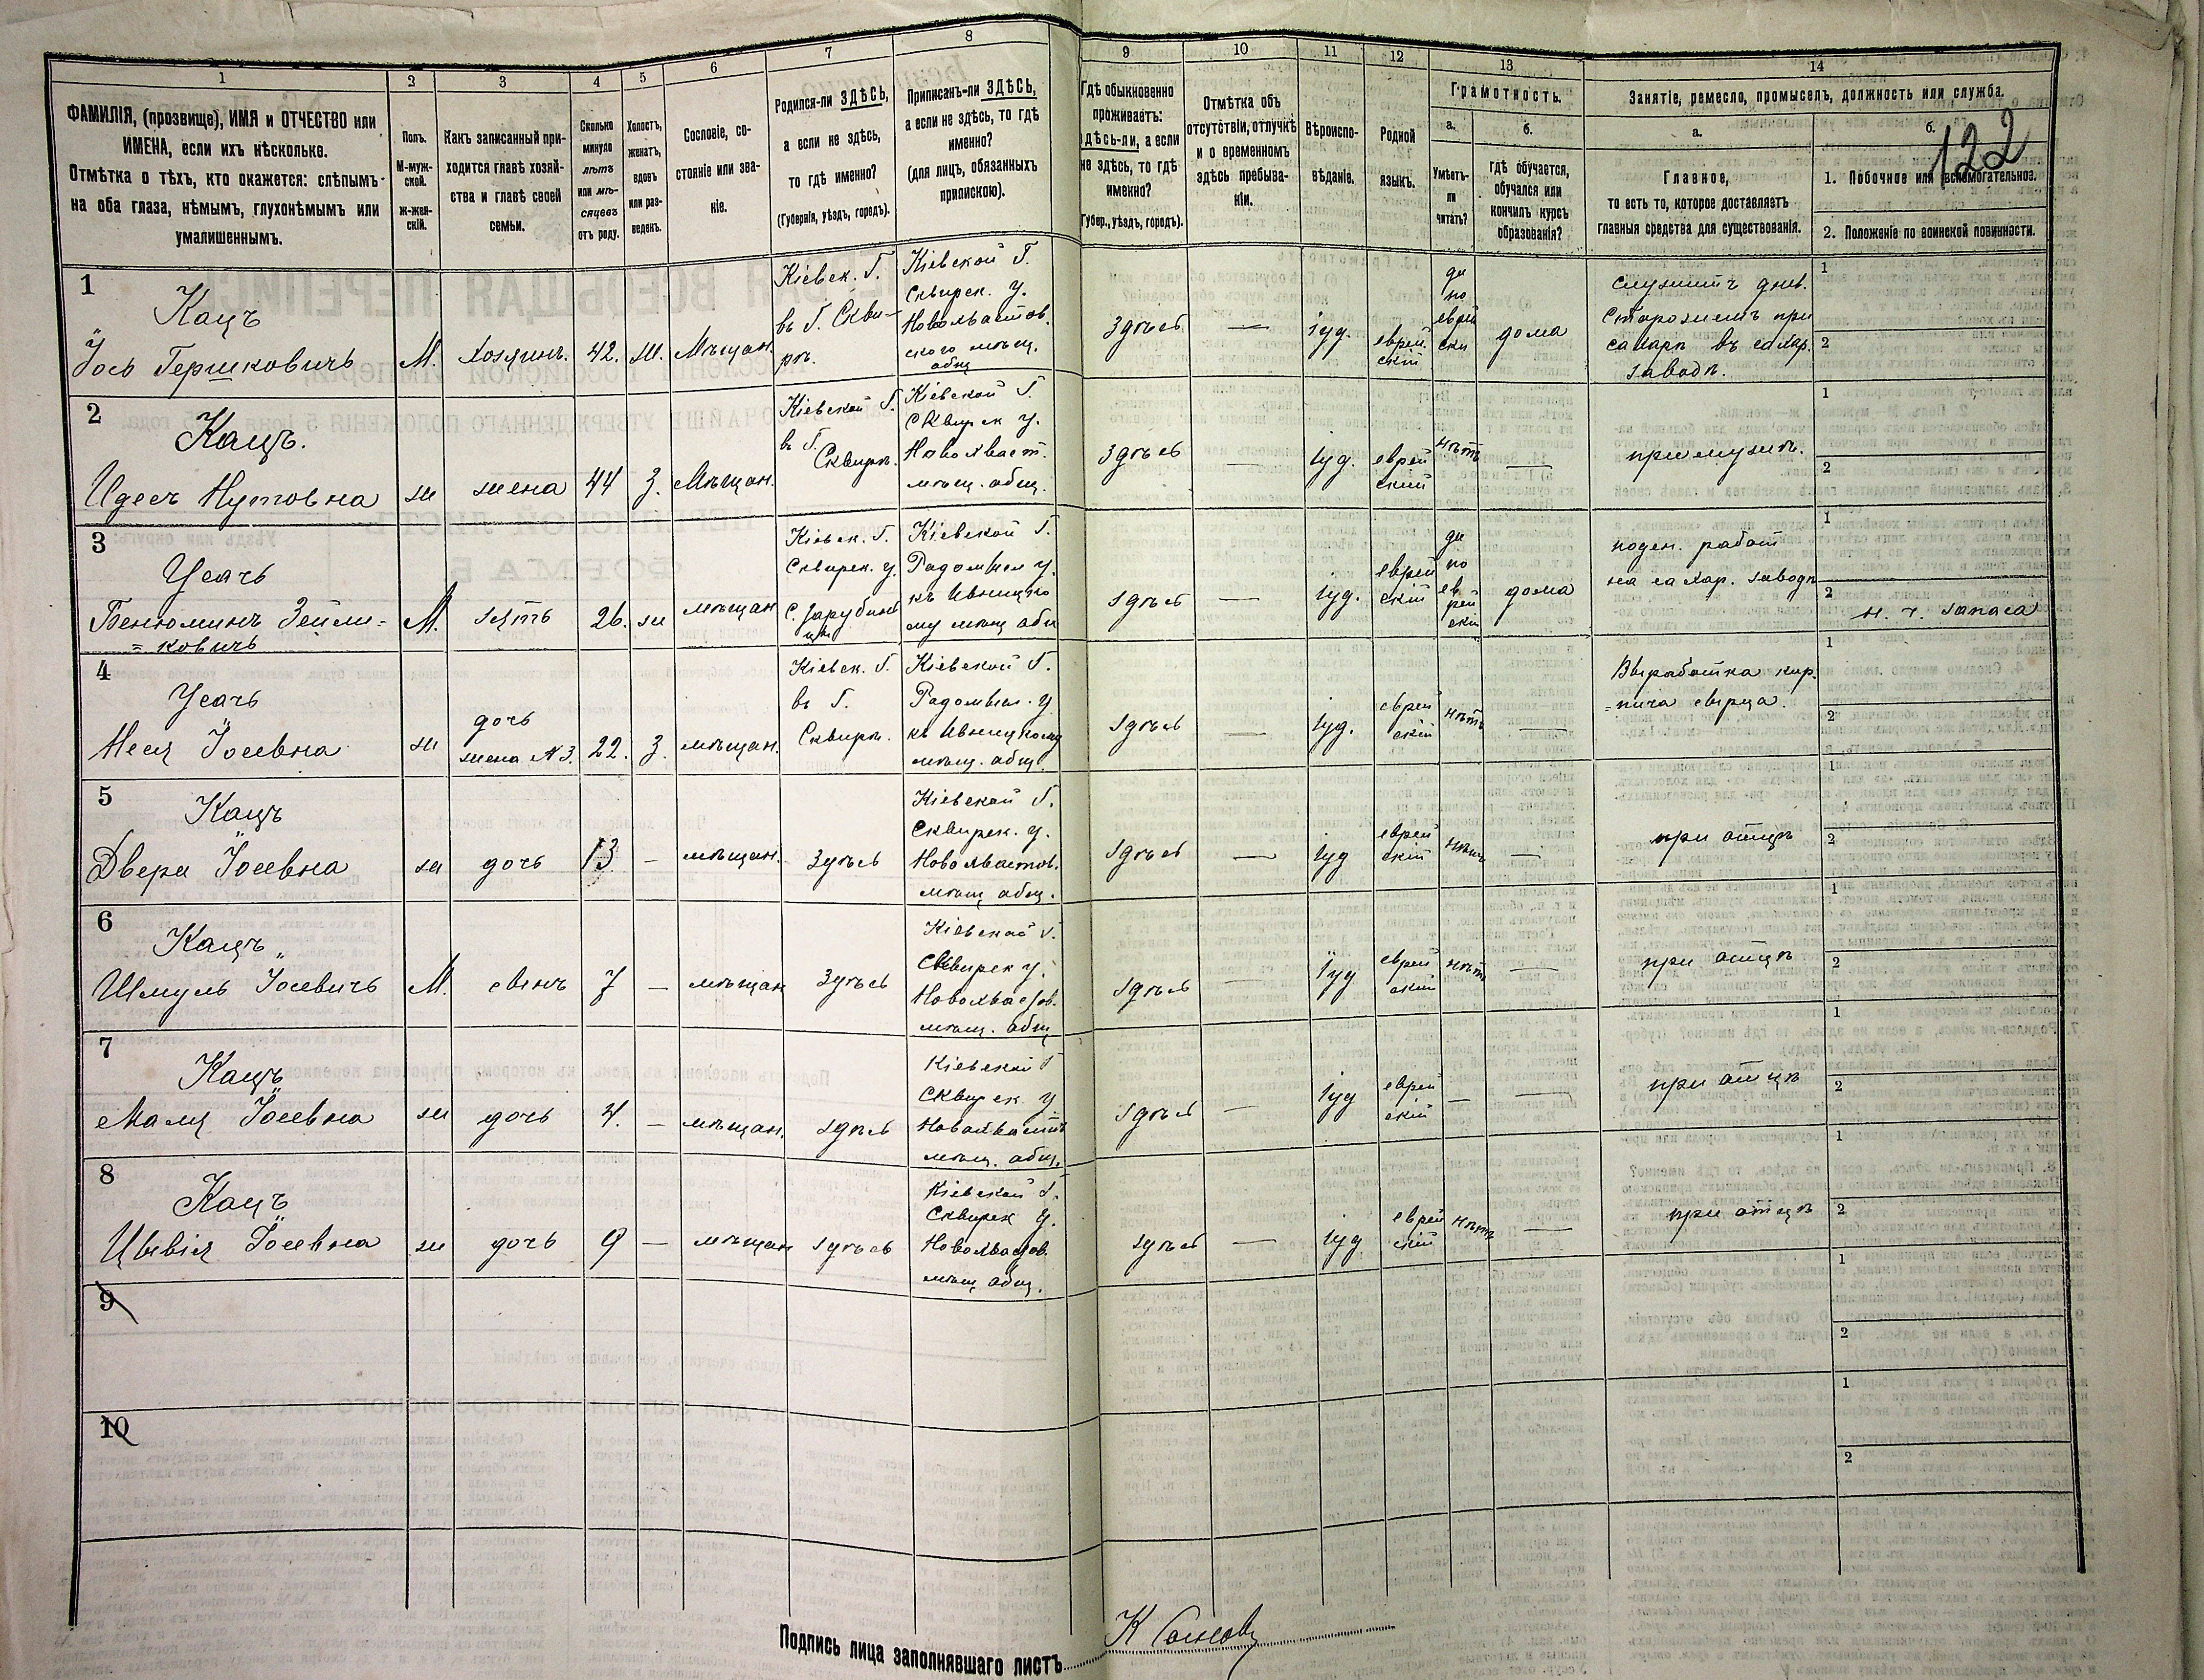 1
2
3
4
5
6
7
8
9
10
11
12
13
14
ФАМИЛІЯ, (прозвище), ИМЯ и ОТЧЕСТВО или
ИМЕНА, если ихъ нѣсколько.
Отмѣтка о тѣхъ, кто окажется: слѣпымъ
на оба глаза, нѣмымъ, глухонѣмымъ или
умалишеннымъ.
Полъ.
М-муж-
ской.
Ж-жен-
скій.
Какъ записанный при-
ходится главѣ хозяй-
ства и главѣ своей
семьи.
Сколько
минуло
лѣтъ
или мѣ-
сяцевъ
отъ роду.
Холостъ,
женатъ,
вдовъ
или раз-
веденъ.
Сословіе, со-
стояніе или зва-
ніе.
Родился-ли ЗДѢСЬ,
а если не здѣсь,
то гдѣ именно?
(Губернія, уѣздъ, городъ).
Приписанъ-ли ЗДѢСЬ,
а если не здѣсь, то гдѣ
именно?
(для лицъ, обязанныхъ
припискою).
Гдѣ обыкновенно
проживаетъ:
здѣсь-ли, а если
не здѣсь, то гдѣ
именно?
(Губер., уѣздъ, городъ).
Отмѣтка объ
отсутствіи, отлучкѣ
и о временномъ
здѣсь пребыва-
ніи.
Вѣроиспо-
вѣданіе.
Родной
языкъ.
Грамотность.
а.
Умѣетъ-
ли
читать?
б.
Гдѣ обучается,
обучался или
кончилъ курсъ
образованія?
Занятіе, ремесло, промыселъ, должность или служба.
а.
Главное,
то есть то, которое доставляетъ
главныя средства для существованія.
б.
122
1. Побочное или вспомогательное.
2. Положеніе по воинской повинности.
1
Кацъ
Іось Гершковичъ
М.
хозяинъ.
42.
ж.
Мѣщан.
Кіевск. Г.
въ Г. Скви-
рѣ.
Кіевской Г.
Сквирск. у.
Новохвастов.
ского мѣщ.
общ
Здѣсь
—
іуд.
еврей
скій
да
по
еврей
ски
дома
служитъ днев.
Сторожемъ при
сахарн въ сахар.
заводѣ.
1
2
2
Кацъ.
Идесъ Нутовна
ж
жена
44
З.
Мѣщан.
Кіевской Г.
въ Г.
Сквирѣ.
Кіевской Г.
Сквирск у.
Новохваст.
мѣщ. общ.
Здѣсь
—
іуд.
еврей
скій
нѣтъ
—
при мужѣ.
1
2
3
Усачъ
Бенюминъ Зейли=
=ковичъ
М.
зять
26.
ж
мѣщан
Кіевск. Г.
Сквирск. у.
С. Зарубинцы
Кіевской Г.
Радомысл у.
къ Ивницко
му мѣщ общ
здѣсь
—
іуд.
еврей
скій
да
по
ев
рей
ски
дома
поден. работ
на сахар. заводѣ
1
2
н. ч. запаса
4
Усачъ
Неся Іосевна
ж
дочь
жена №3.
22.
З.
мѣщан.
Кіевск. Г.
въ Г.
Сквирѣ.
Кіевской Г.
Радомысл. у
къ Ивницкому
мѣщ. общ.
здѣсь
—
іуд.
еврей
скій
нѣтъ
—
Выработка кир.
=пича сырца.
1
2
5
Кацъ
Двера Іосевна
ж
дочь
13
—
мѣщан.
Здѣсь
Кіевской Г.
Сквирск. у.
Новохвастов.
мѣщ общ.
здѣсь
—
іуд
еврей
скій
нѣтъ
—
при отцѣ
1
2
6
Кацъ
Шмуль Іосевичъ
М.
сынъ
7
—
мѣщан
Здѣсь
Кіевской Г.
Сквирск у.
Новохвастов.
мѣщ. общ
здѣсь
—
іуд
еврей
скій
нѣтъ
—
при отцѣ
1
2
7
Кацъ
Маля Іосевна
ж
дочь
4.
—
мѣщан.
здѣсь
Кіевской Г
Сквирск у
Новохваст
мѣщ. общ.
здѣсь
—
іуд
еврей
скій
—
—
при отцѣ
1
2
8
Кацъ
Цывія Іосевна
ж
дочь
9
—
мѣщан
здѣсь
Кіевской Г.
Сквирск у.
Новохвастов.
мѣщ общ.
здѣсь
—
іуд
еврей
скій
нѣтъ
—
при отцѣ
1
2
9
1
2
10
1
2
Подпись лица заполнявшаго листъ